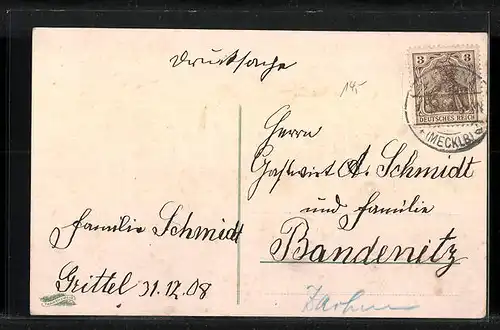 Drucksache
14,-
3 3
DEUTSCHES REICH
(MECKLB)
Herrn
Gastwirt A. Schmidt
und Familie
Bandenitz
Familie Schmidt
Grittel 31.12.08